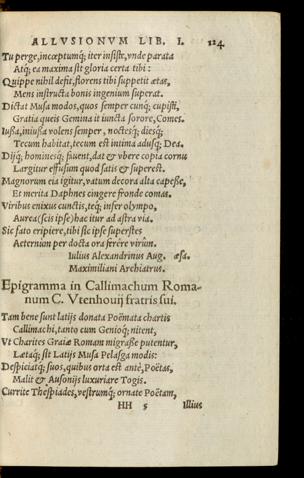 ALLVSIONVM LIB. I. 124
Tu perge, incœptumq; iter insiste, vnde parata
Atq; ea maxima sit gloria certa tibi:
Quippe nihil defit, florens tibi suppetit ætas,
Mens instructa bonis ingenium superat.
Dictat Musa modos, quos semper cunq; cupisti,
Gratia queis Gemina it iuncta sorore, Comes.
Iussa, iniussa volens semper, noctesq; diesq;
Tecum habitat, tecum est intima adusq; Dea.
Dijq; hominesq; fauent, dat & vbere copia cornu
Largitur effusum quod satis & superest.
Magnorum eia igitur, vatum decora alta capesse,
Et merita Daphnes cingere fronde comas.
Viribus enixus cunctis, teq; infer olympo,
Aurea (scis ipse) hac itur ad astra via.
Sic fato eripiere, tibi sic ipse superstes
Aeternùm per docta ora ferêre virûm.
Iulius Alexandrinus Aug. æsa.
Maximiliani Archiatrus.
Epigramma in Callimachum Roma-
num C. Vtenhouij fratris sui.
Tam bene sunt latijs donata Poëmata chartis
Callimachi, tanto cum Genioq; nitent,
Vt Charites Graiæ Romam migrasse putentur,
Lætaq; sit Latijs Musa Pelasga modis:
Despiciatq; suos, quibus orta est antè, Poëtas,
Malit & Ausonijs luxuriare Togis.
Currite Thespiades, vestrumq; ornate Poëtam,
HH 5 Illius